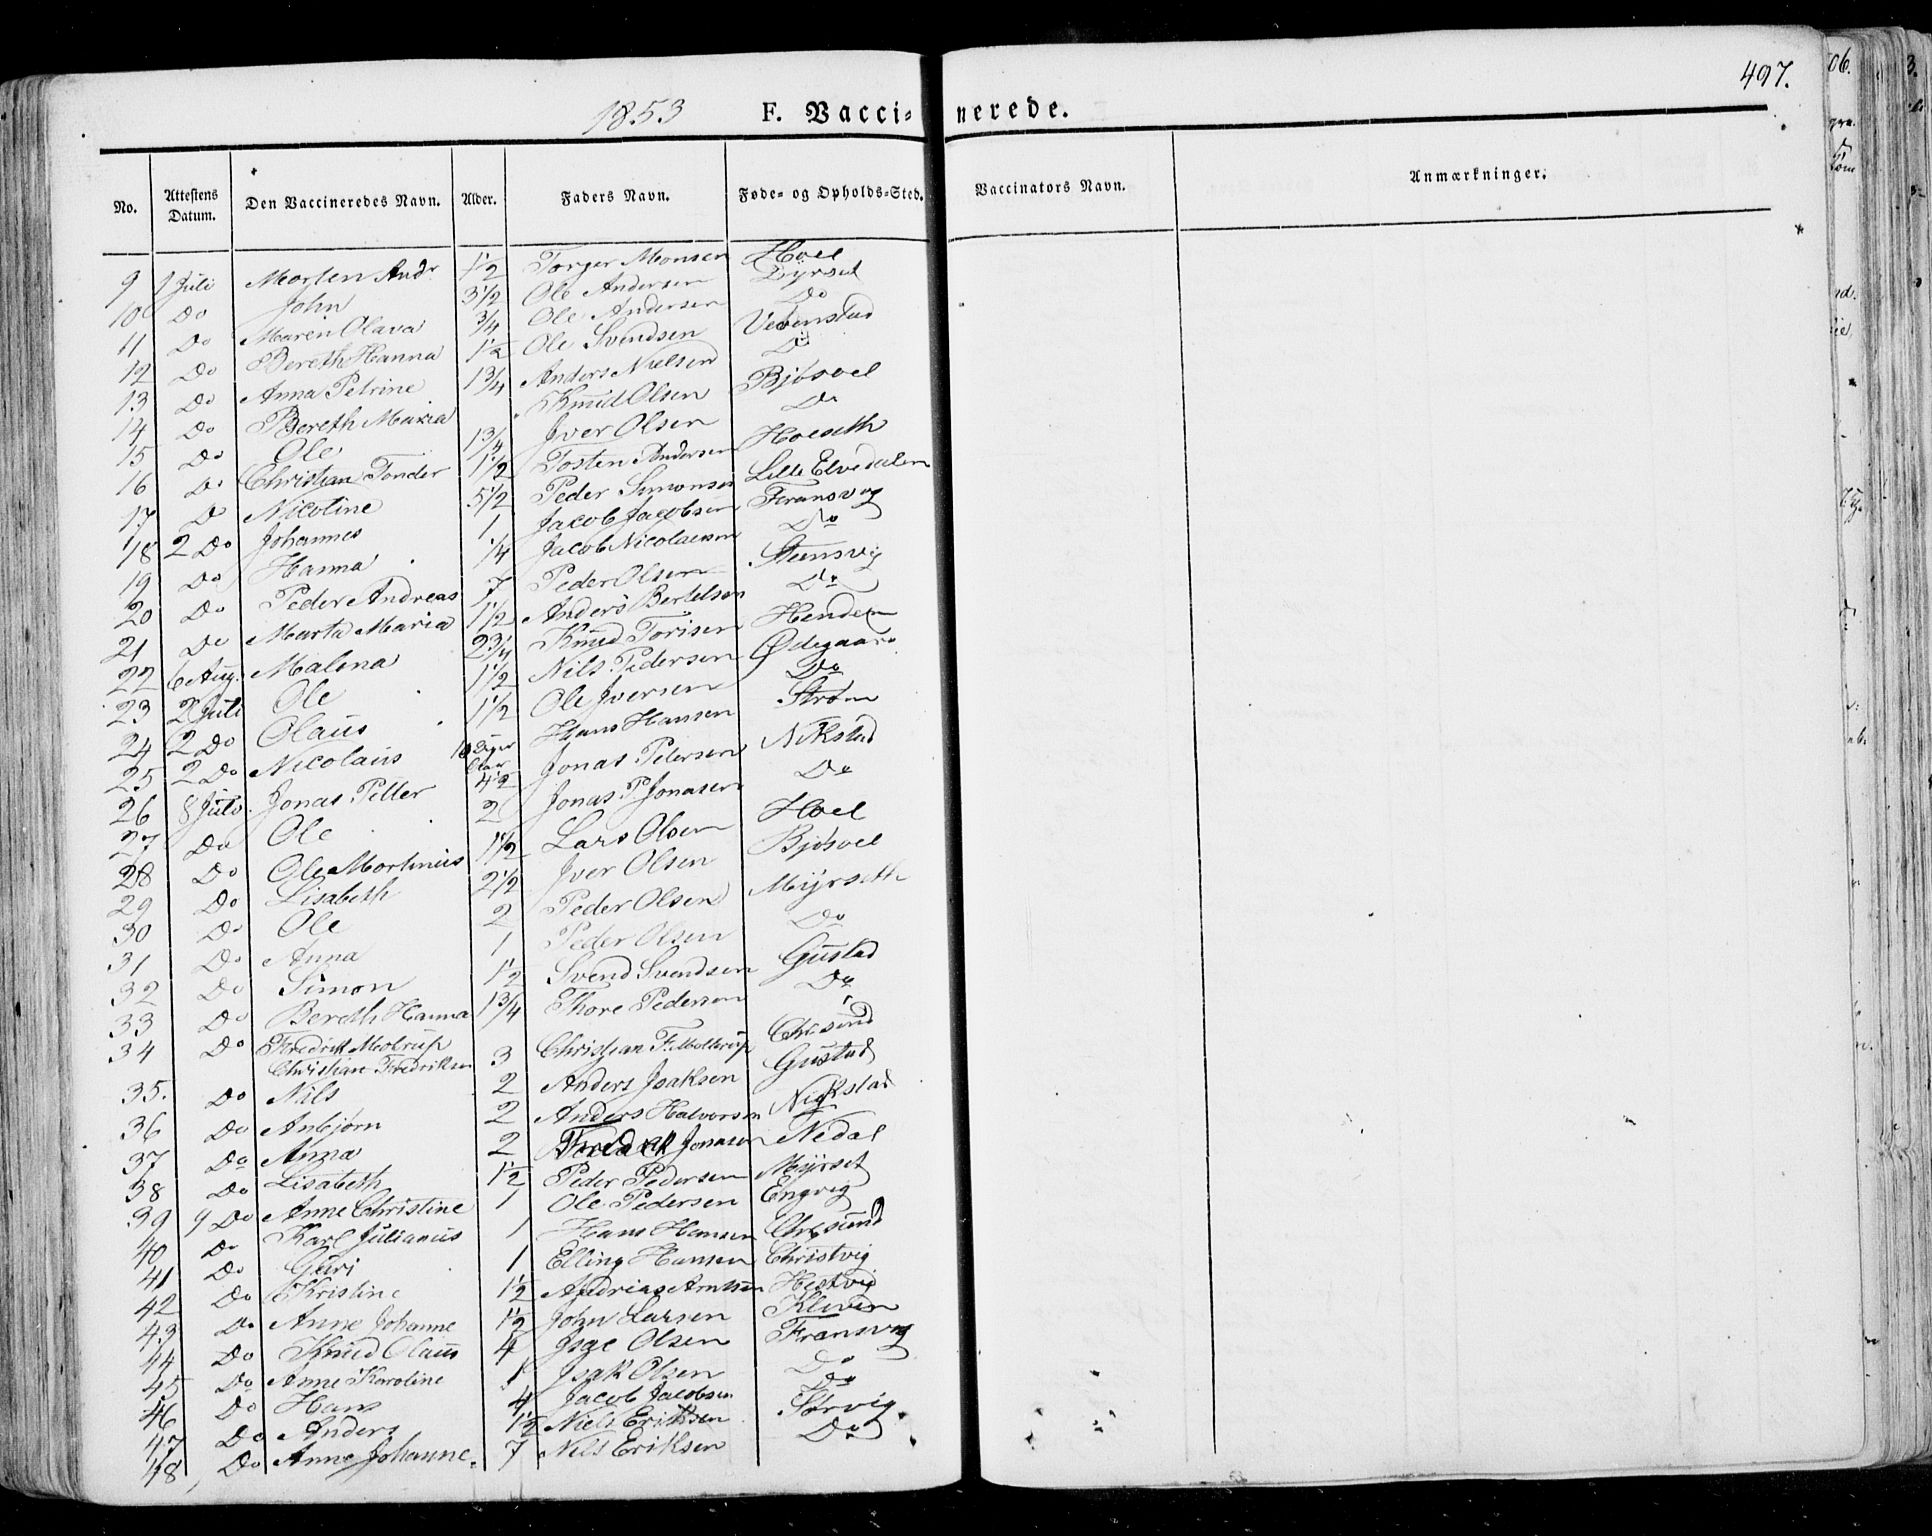 497.
1853 F. Vacci- nerede.
No. Attestens Datum. Den Vaccineredes Navn. Alder. Faders Navn. Føde- og Opholds-Sted. Vaccinators Navn. Anmærkninger.
9 1 Juli Morten Andr 1 1/2 Torger Monsen Hoel
10 Do John 3 1/2 Ole Andersen Dyrset
11 Do Maren Olava 3/4 Ole Andersen Do
12 Do Bereth Hanna 1 1/2 Ole Svendsen Vevenstad
13 Do Anna Petrine 1 3/4 Anders Nielsen Do
14 Do Bereth Maria " Knud Olsen Bjösvel
15 Do Ole 1 3/4 Iver Olsen Do
16 Do Christian Tonder 1 1/2 Tosten Andersen Hoeseth
17 Do Nicoline 5 1/2 Peder Simonsen Lille Elvedalen
18 2 Do Johannes 1 Jacob Jacobsen Fransvog
19 Do Hanna 1/4 Jacob Nicolaisen Do
20 Do Peder Andreas 7 Peder Olsen Steensvig
21 Do Marta Maria 1 1/2 Anders Bertelsen Do
22 6 Aug. Malena 2 3/4 Knud Torisen Henden
23 2 Juli Ole 1 1/2 Nils Pedersen Ødegaard
24 2 Do Olaus 1 1/2 Ole Iversen Do
25 2 Do Nicolaus Hans Hansen Strøm
26 8 Juli Jonas Petter 4 1/2 Jonas Petersen Nikstad
27 Do Ole 2 Jonas P. Jonasen Do
28 Do Ole Mortinus 1 1/2 Lars Olsen Hoel
29 Do Lisabeth 2 1/2 Iver Olsen Bjösvel
30 Do Ole 2 Peder Olsen Myrseth
31 Do Anna 1 Peder Olsen Do
32 Do Simon 1 1/2 Svend Svendsen Gustad
33 Do Bereth Hanna 1 3/4 Thore Pedersen Do
34 Do Fredrik Moltrup
Christian Fredriksen 3 Christian F. Moltrup Chrsund
35. Do Nils 2 Anders Isaksen Gustad
36 Do Anbjørn 2 Anders Halvorsen Nickstad
37 Do Anna 2 Fredrik Jonasen Nedal
38 Do Lisabeth 1 1/2 Peder Pedersen Myrset
39 9 Do Anne Christine 1 Ole Pedersen Engvig
40 Do Karl Julianus 1 Hans Hansen Chrsund
41 Do Guri 1 Elling Hansen Christvig
42 Do Kristine 1 1/2 Andrias Arntsen Hestvig
43 Do Anne Johanne 1 1/2 John Larsen Kleven
44 Do Knud Olaus 4 Isac Olsen Fransvog
45 Do Anne Karoline 1 Isak Olsen Do
46 Do Hans 4 Jacob Jacobsen Do
47 Do Anders 1 1/2 Niels Eriksen Størvig
48 Do Anne Johanne. 7 Nils Eriksen Do